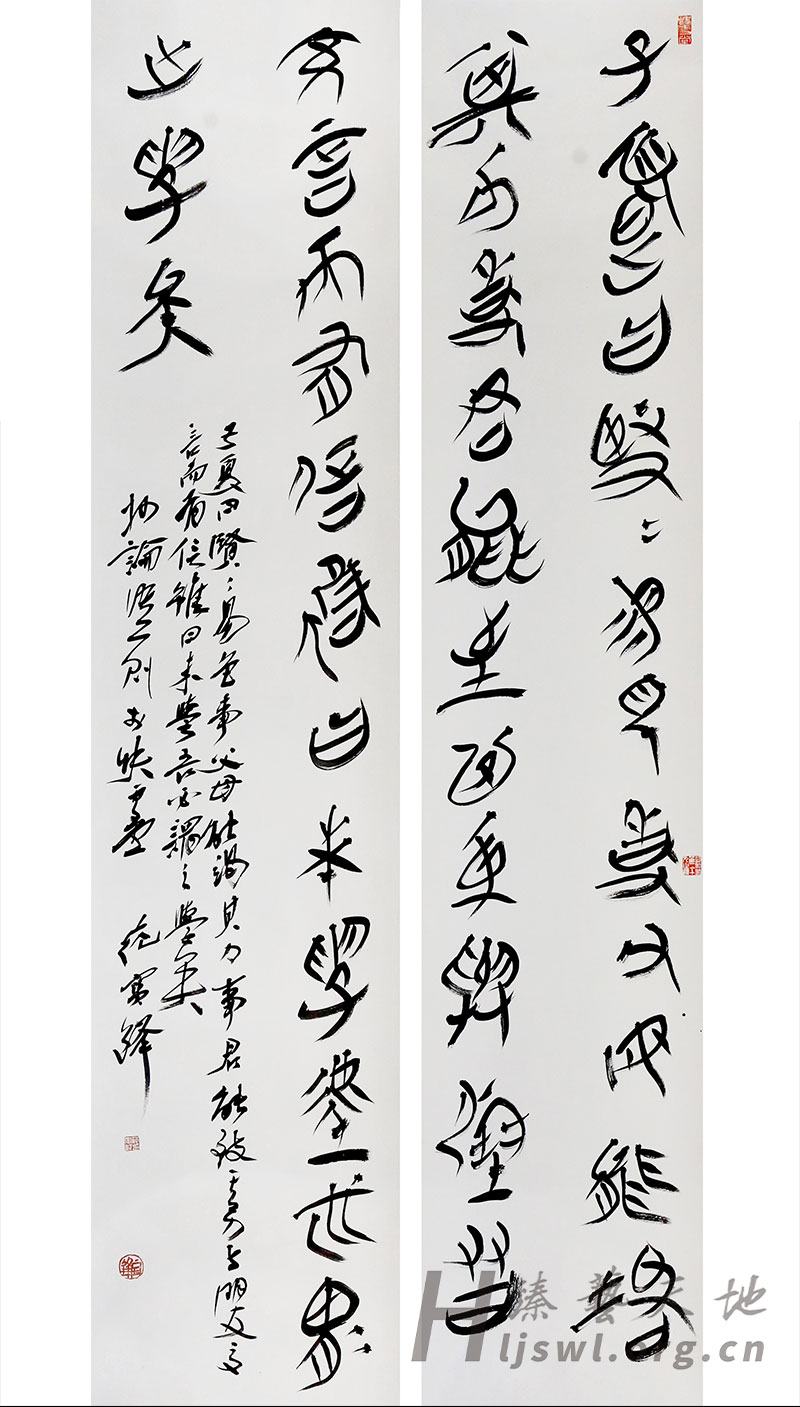 子夏曰賢〻易色事父母能竭
其力事君能致其身與朋友
交言而有信雖曰未學吾必謂
之學矣
子夏曰賢〻易色事父母能竭其力事君能致其身與朋友交
言而有信雖曰未學吾必謂之學矣
抄論語一則於
臻藝天地
Hljswl.org.cn